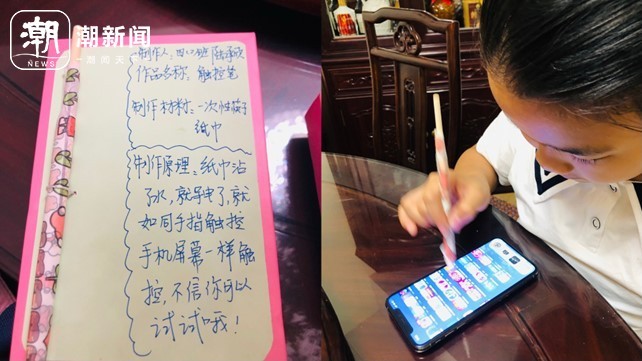 潮
潮新闻
NEWS
制作人：四(2)班
作品名称：触控笔
制作材料：一次性筷子
纸巾
制作原理：纸巾沾
了水，就导电了，就
如同手指触控
手机屏幕一样触
控，不信你可以
试试哦！